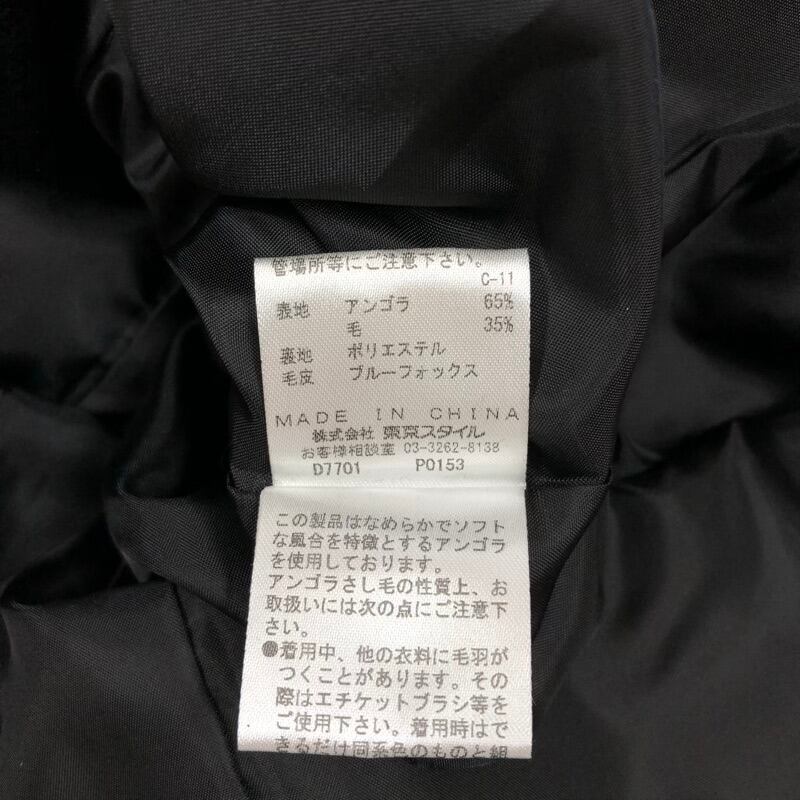 管場所等にご注意下さい。
C-11
表地 アンゴラ 65%
毛 35%
裏地 ポリエステル
毛皮 ブルーフォックス
MADE IN CHINA
株式会社 東京スタイル
お客様相談室 03-3262-8138
D7701 P0153
この製品はなめらかでソフト
な風合を特徴とするアンゴラ
を使用しております。
アンゴラさし毛の性質上、お
取扱いには次の点にご注意下
さい。
●着用中、他の衣料に毛羽が
つくことがあります。その
際はエチケットブラシ等を
ご使用下さい。着用時はで
きるだけ同系色のものと組